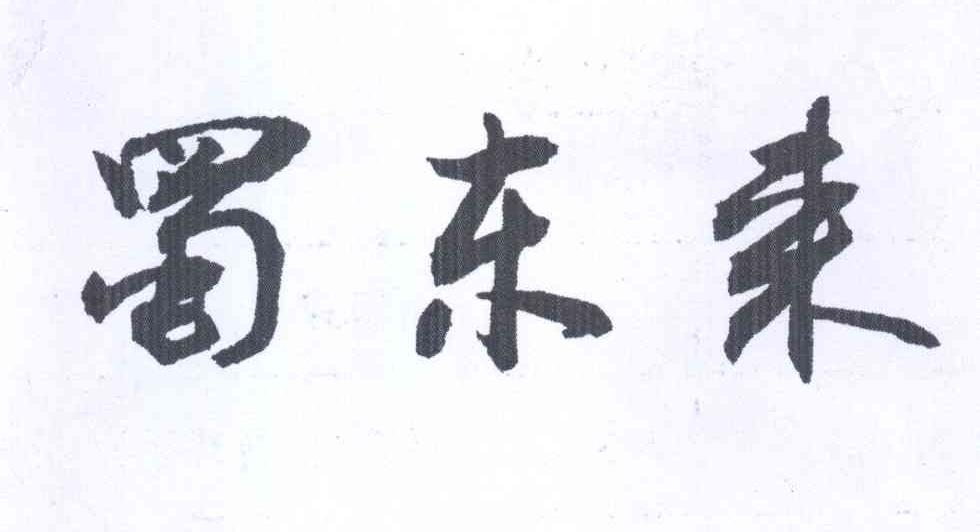 蜀东来